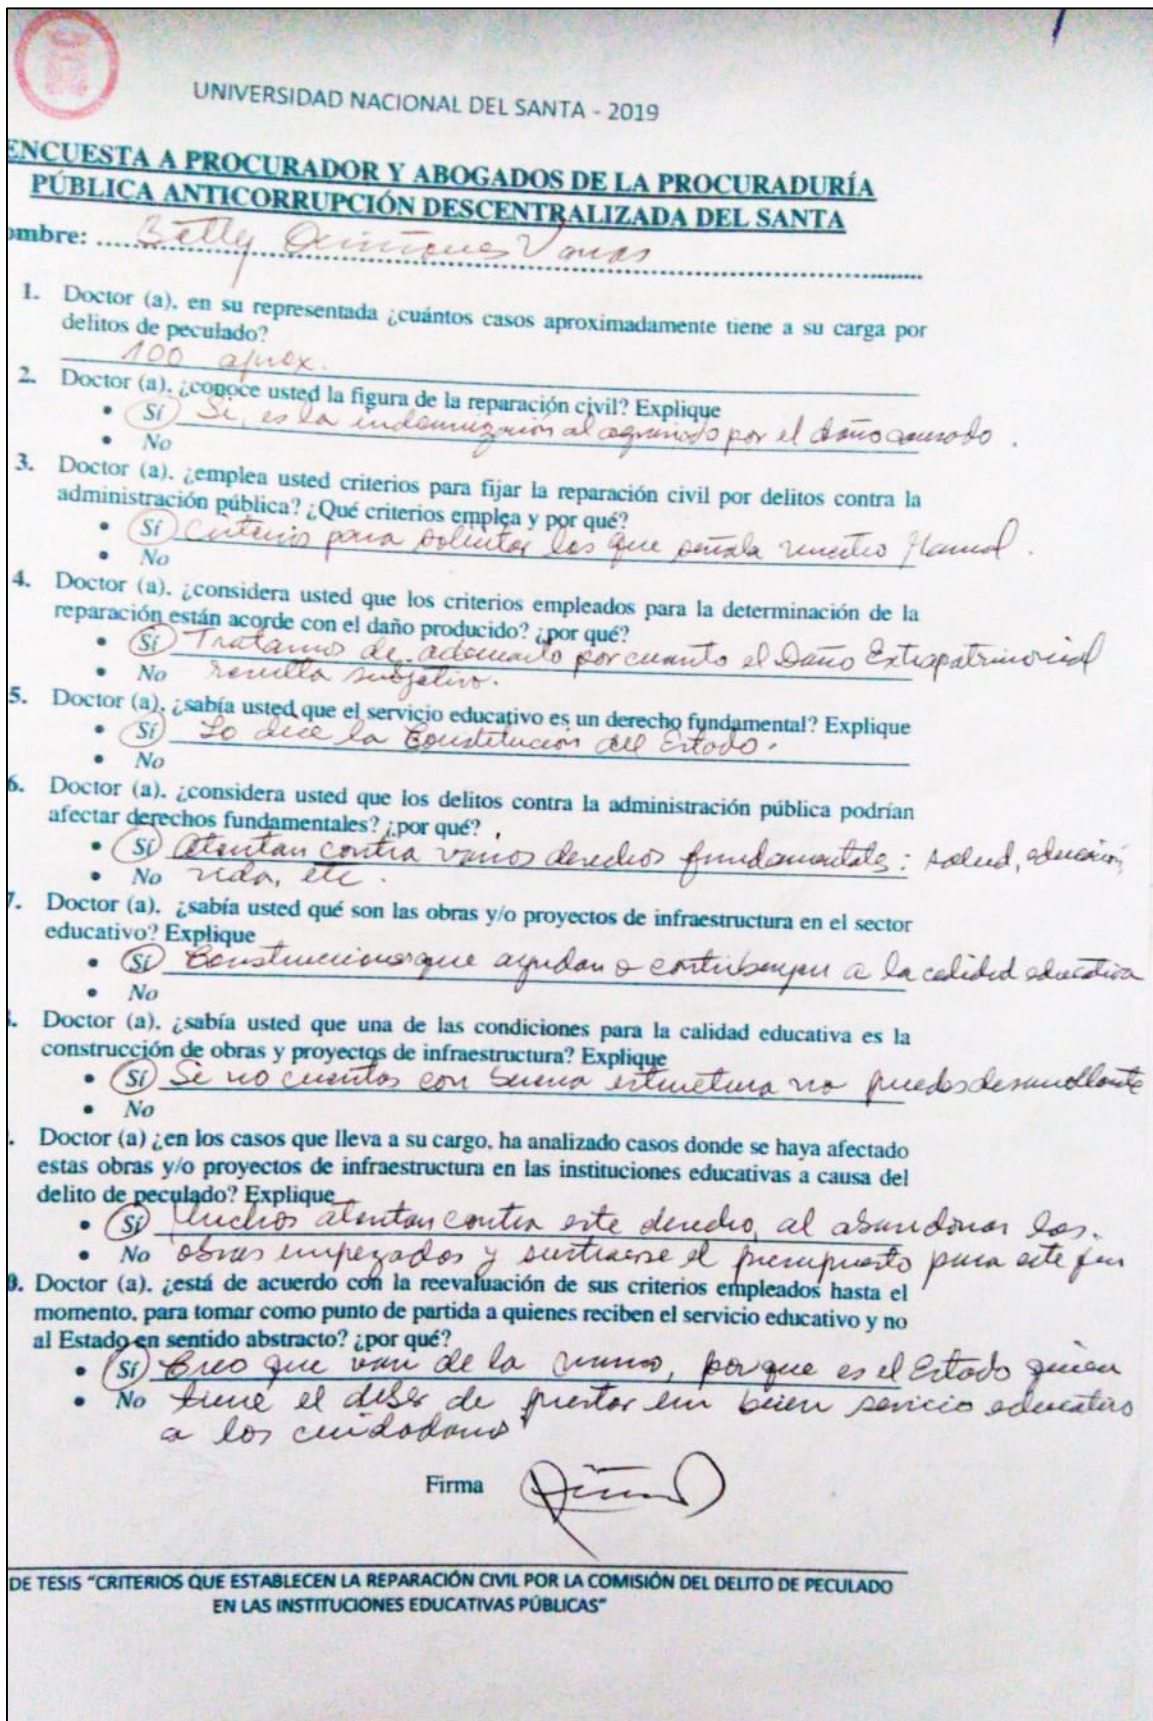 UNIVERSIDAD NACIONAL DEL SANTA - 2019
ENCUESTA A PROCURADOR Y ABOGADOS DE LA PROCURADURÍA
PÚBLICA ANTICORRUPCIÓN DESCENTRALIZADA DEL SANTA
ombre: Betty Quiñones Varas
1. Doctor (a). en su representada ¿cuántos casos aproximadamente tiene a su carga por
delitos de peculado?
100 aprox.
2. Doctor (a). ¿conoce usted la figura de la reparación civil? Explique
• Sí Si, es la indemnización al agraviado por el daño causado.
• No
3. Doctor (a). ¿emplea usted criterios para fijar la reparación civil por delitos contra la
administración pública? ¿Qué criterios emplea y por qué?
• Sí Criterios para solicitar los que señala nuestro Manual.
• No
4. Doctor (a). ¿considera usted que los criterios empleados para la determinación de la
reparación están acorde con el daño producido? ¿por qué?
• Sí Tratamos de adecuarlo por cuanto el Daño Extrapatrimonial
• No resulta subjetivo.
5. Doctor (a). ¿sabía usted que el servicio educativo es un derecho fundamental? Explique
• Sí Lo dice la Constitución del Estado.
• No
6. Doctor (a). ¿considera usted que los delitos contra la administración pública podrían
afectar derechos fundamentales? ¿por qué?
• Sí Atentan contra varios derechos fundamentales: salud, educación,
• No vida, etc.
7. Doctor (a). ¿sabía usted qué son las obras y/o proyectos de infraestructura en el sector
educativo? Explique
• Sí Construcciones que ayudan o contribuyen a la calidad educativa
• No
. Doctor (a). ¿sabía usted que una de las condiciones para la calidad educativa es la
construcción de obras y proyectos de infraestructura? Explique
• Sí Si no cuentas con buena estructura no puedes desarrollarte
• No
. Doctor (a) ¿en los casos que lleva a su cargo, ha analizado casos donde se haya afectado
estas obras y/o proyectos de infraestructura en las instituciones educativas a causa del
delito de peculado? Explique
• Sí Muchos atentan contra este derecho, al abandonar las
• No obras empezados y sustraerse el presupuesto para este fin
0. Doctor (a). ¿está de acuerdo con la reevaluación de sus criterios empleados hasta el
momento, para tomar como punto de partida a quienes reciben el servicio educativo y no
al Estado en sentido abstracto? ¿por qué?
• Sí Creo que van de la mano, porque es el Estado quien
• No tiene el deber de prestar un buen servicio educativo
a los ciudadanos
Firma
DE TESIS "CRITERIOS QUE ESTABLECEN LA REPARACIÓN CIVIL POR LA COMISIÓN DEL DELITO DE PECULADO
EN LAS INSTITUCIONES EDUCATIVAS PÚBLICAS"